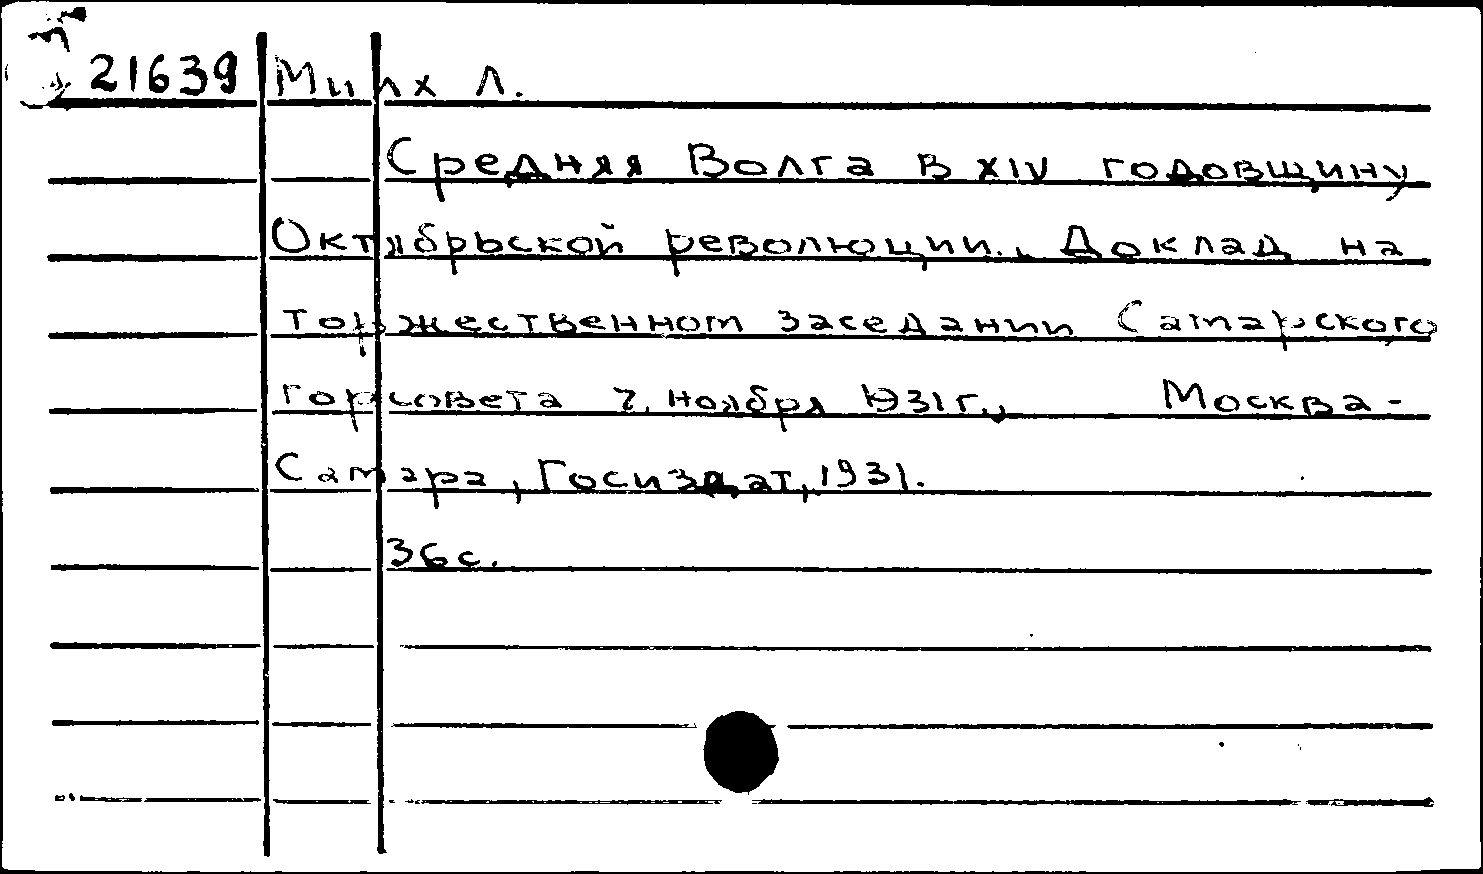 21639 Милх Л.
Средняя Волга в XIV годовщину
Октябрьской революции. Доклад на
торжественном заседании Самарского
горсовета 7 ноября 1931г., Москва-
Самара, Госиздат, 1931.
36с.